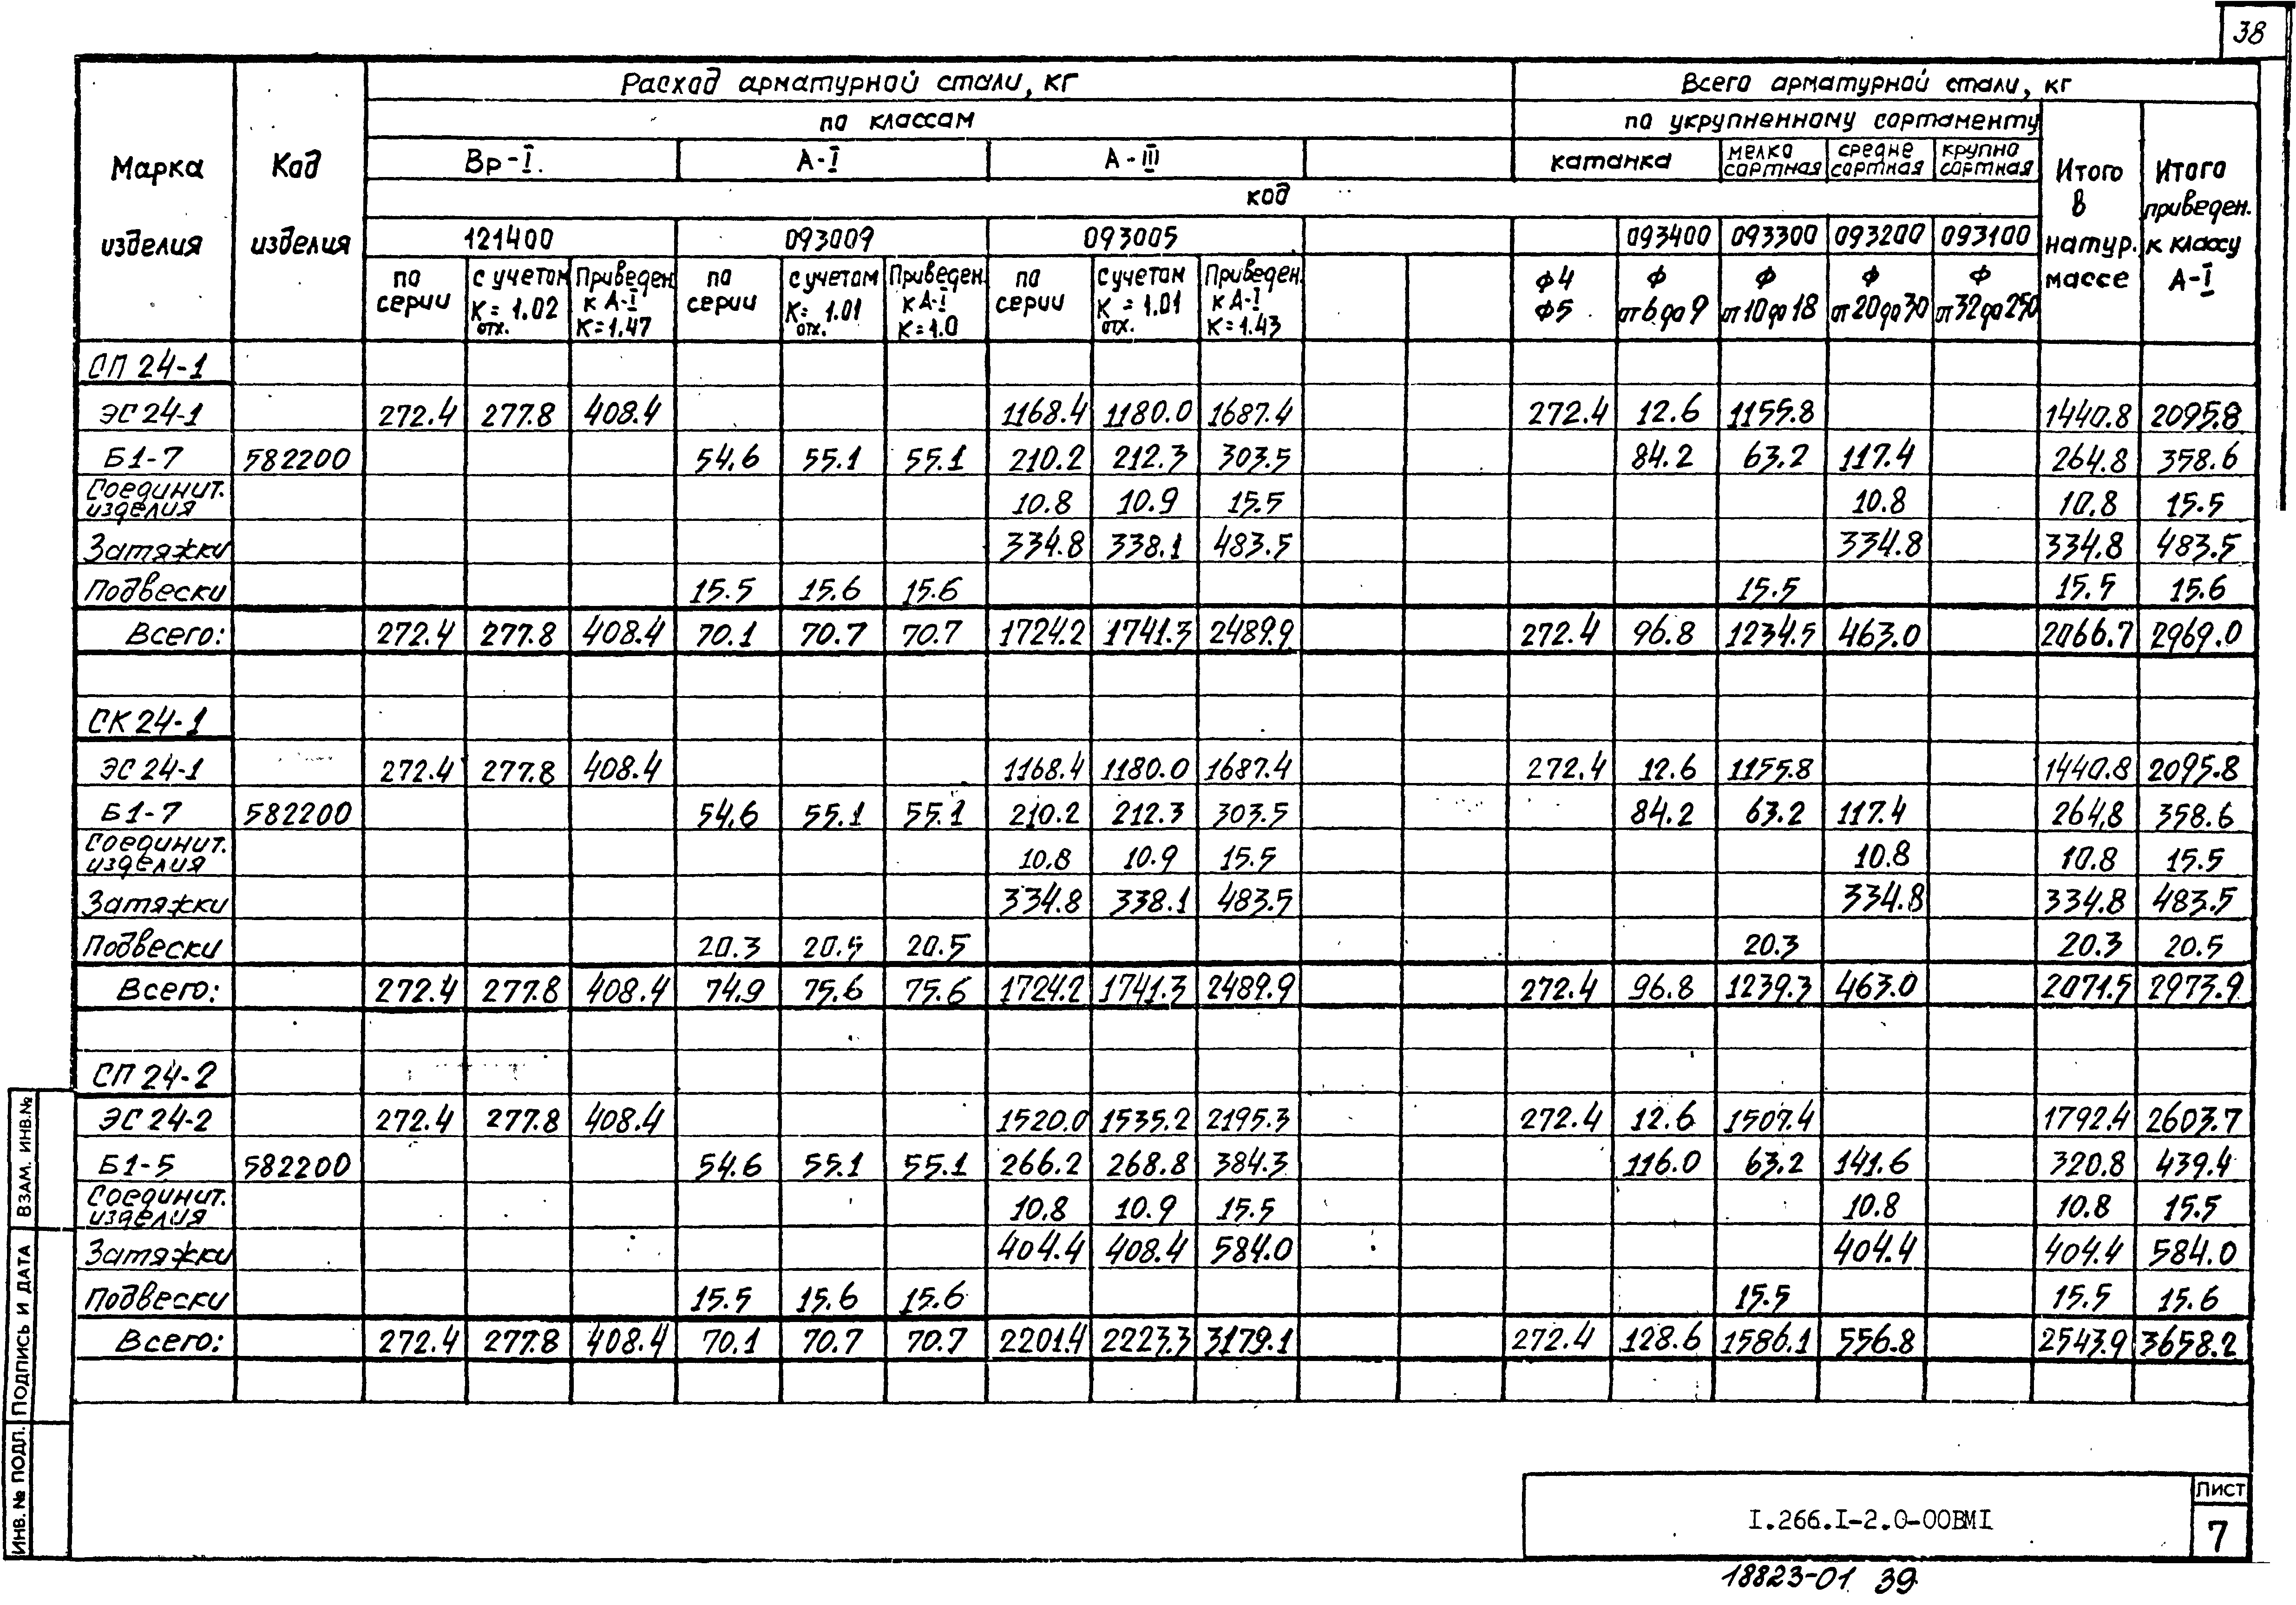 38
Расход арматурной стали, кг Всего арматурной стали, кг
по классам по укрупненному сортаменту
Марка изделия Код изделия Вр-I. А-I А-III катанка мелко сортная средне сортная крупно сортная Итого в натур. массе Итого приведен. к классу А-I
код
121400 093009 093005 093400 093300 093200 093100
по серии с учетом Kотх.=1.02 Приведен. к А-I K=1.47 по серии с учетом Kотх.=1.01 Приведен. к А-I K=1.0 по серии с учетом Kотх.=1.01 Приведен. к А-I K=1.43 ф4 ф5 ф от 6 до 9 ф от 10 до 18 ф от 20 до 30 ф от 32 до 250
СП 24-1
ЭС 24-1 272.4 277.8 408.4 1168.4 1180.0 1687.4 272.4 12.6 1155.8 1440.8 2095.8
Б1-7 582200 54.6 55.1 55.1 210.2 212.3 303.5 84.2 63.2 117.4 264.8 358.6
Соединит. изделия 10.8 10.9 15.5 10.8 10.8 15.5
Затяжки 334.8 338.1 483.5 334.8 334.8 483.5
Подвески 15.5 15.6 15.6 15.5 15.5 15.6
Всего: 272.4 277.8 408.4 70.1 70.7 70.7 1724.2 1741.3 2489.9 272.4 96.8 1234.5 463.0 2066.7 2969.0
СК 24-1
ЭС 24-1 272.4 277.8 408.4 1168.4 1180.0 1687.4 272.4 12.6 1155.8 1440.8 2095.8
Б1-7 582200 54.6 55.1 55.1 210.2 212.3 303.5 84.2 63.2 117.4 264.8 358.6
Соединит. изделия 10.8 10.9 15.5 10.8 10.8 15.5
Затяжки 334.8 338.1 483.5 334.8 334.8 483.5
Подвески 20.3 20.5 20.5 20.3 20.3 20.5
Всего: 272.4 277.8 408.4 74.9 75.6 75.6 1724.2 1741.3 2489.9 272.4 96.8 1239.3 463.0 2071.5 2973.9
СП 24-2
ЭС 24-2 272.4 277.8 408.4 1520.0 1535.2 2195.3 272.4 12.6 1507.4 1792.4 2603.7
Б1-5 582200 54.6 55.1 55.1 266.2 268.8 384.3 116.0 63.2 141.6 320.8 439.4
Соединит. изделия 10.8 10.9 15.5 10.8 10.8 15.5
Затяжки 404.4 408.4 584.0 404.4 404.4 584.0
Подвески 15.5 15.6 15.6 15.5 15.5 15.6
Всего: 272.4 277.8 408.4 70.1 70.7 70.7 2201.4 2223.3 3179.1 272.4 128.6 1586.1 556.8 2543.9 3658.2
ИНВ. № ПОДЛ. ПОДПИСЬ И ДАТА ВЗАМ. ИНВ.№
I.266.I-2.0-00ВМI
Лист
7
18823-01 39